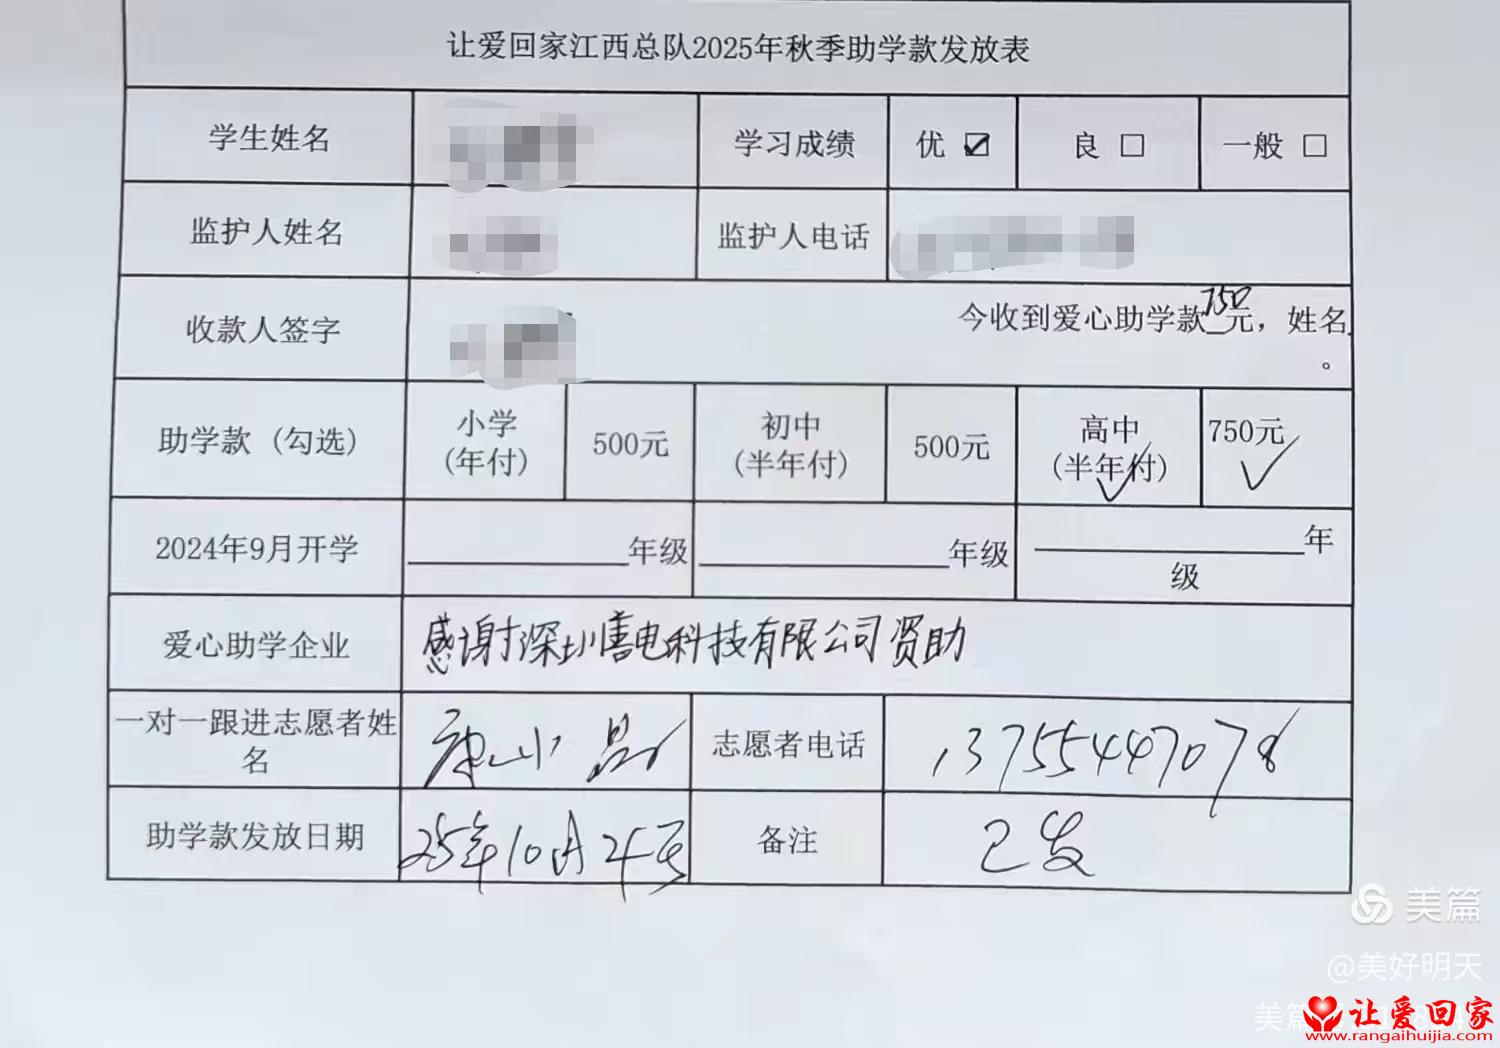 让爱回家江西总队2025年秋季助学款发放表
学生姓名 学习成绩 优 ☑ 良 □ 一般 □
监护人姓名 监护人电话
收款人签字 今收到爱心助学款750元，姓名
。
助学款（勾选） 小学（年付） 500元 初中（半年付） 500元 高中（半年付）✓ 750元✓
2024年9月开学 年级 年级 年级
爱心助学企业 感谢深圳善电科技有限公司资助
一对一跟进志愿者姓名 志愿者电话 13755447078
助学款发放日期 25年10月24号 备注 已发
美篇
@美好明天
美篇
让爱回家
www.rangaihuijia.com